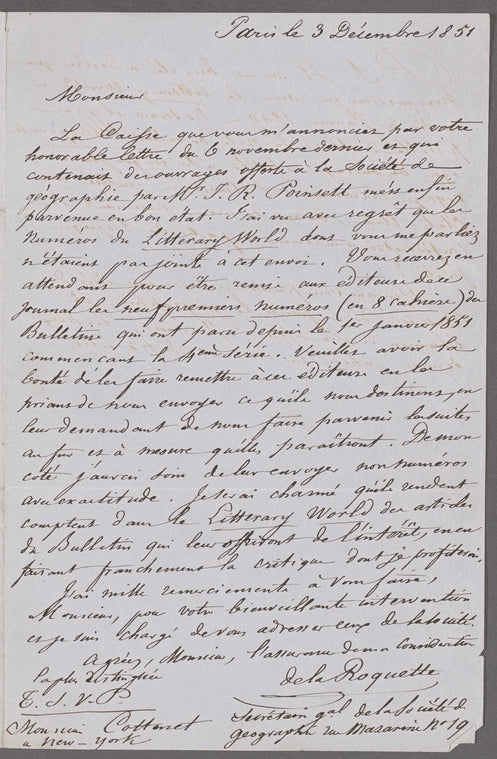 Paris le 3 Décembre 1851
Monsieur
La Caisse que vous m'annonciez par votre
honorable lettre du 6 novembre dernier et qui
contenait des ouvrages offerts à la Société de
géographie par Mr J. R. Poinsett m'est enfin
parvenue en bon état. J'ai vu avec regrêt que les
Numéros du Litterary World dont vous me parliez
n'étaient pas joints à cet envoi. Vous recevrez en
attendant pour être remis aux éditeurs de ce
journal les neuf premiers numéros (en 8 cahiers) du
Bulletin qui ont paru depuis le 1er Janvier 1851
commencant la 4eme Série. Veuillez avoir la
bonté de les faire remettre à ces éditeurs en les
priant de nous envoyer ce qu'ils nous destinent, en
leur demandant de nous faire parvenir les suites
au fur et à mesure qu'elles paraîtront. De mon
coté j'aurai soin de leur envoyer nos numéros
avec exactitude. Je serai charmé qu'ils rendent
compte dans le Litterary World des articles
du Bulletin qui leur offriront de l'intérêt, en en
faisant franchement la critique dont je profiterai.
J'ai mille remerciements à vous faire,
Monsieur, pour votre bienveillante intervention
et je suis chargé de vous adresser ceux de la Société.
Agréez, Monsieur, l'assurance de ma considération
la plus distinguée
de la Roquette
T. S. V. P.
Secrétaire gal de la Société de
géographie rue Mazarine No 19
Monsieur
a New-York